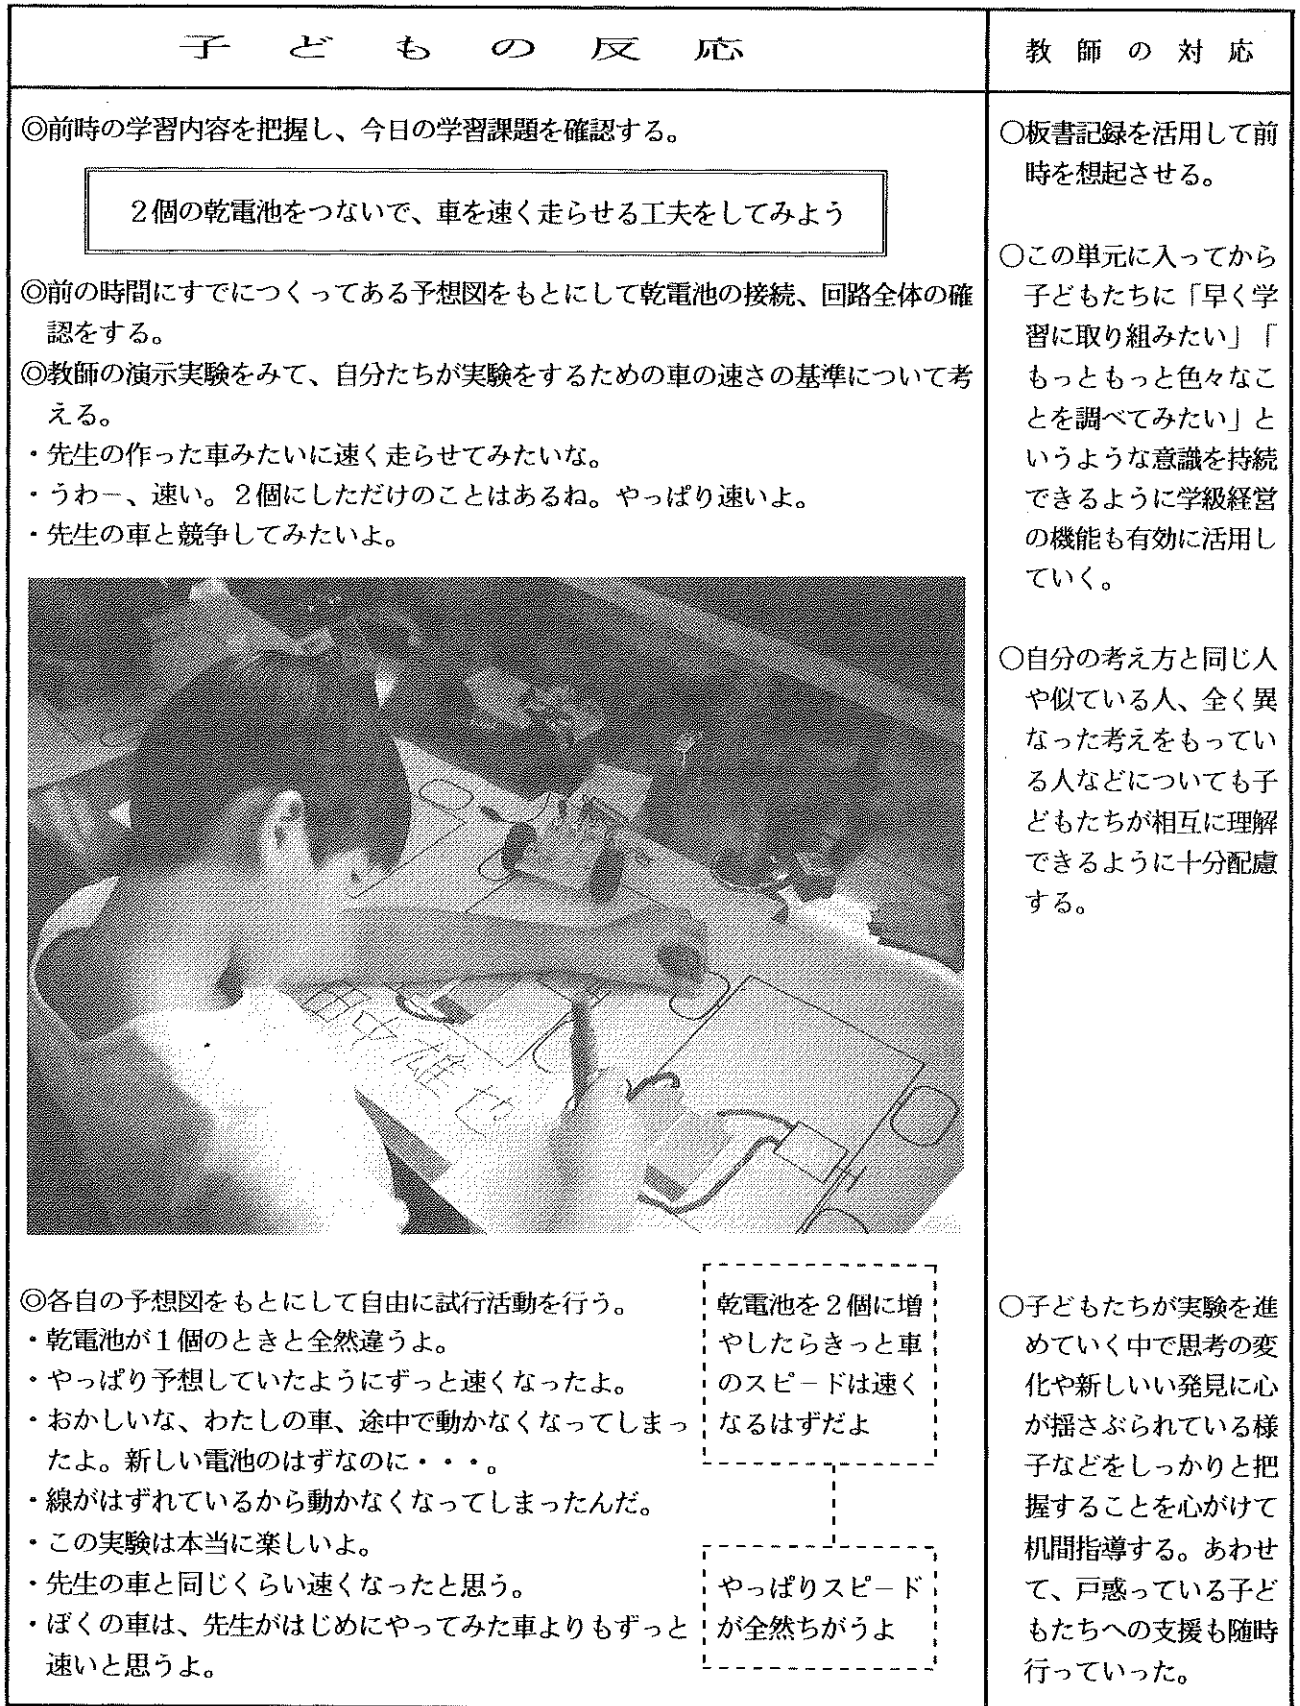 子どもの反応
教師の対応
◎前時の学習内容を把握し、今日の学習課題を確認する。
2個の乾電池をつないで、車を速く走らせる工夫をしてみよう
◎前の時間にすでにつくってある予想図をもとにして乾電池の接続、回路全体の確
認をする。
◎教師の演示実験をみて、自分たちが実験をするための車の速さの基準について考
える。
・先生の作った車みたいに速く走らせてみたいな。
・うわー、速い。2個にしただけのことはあるね。やっぱり速いよ。
・先生の車と競争してみたいよ。
田中雄也
◎各自の予想図をもとにして自由に試行活動を行う。
・乾電池が1個のときと全然違うよ。
・やっぱり予想していたようにずっと速くなったよ。
・おかしいな、わたしの車、途中で動かなくなってしまっ
たよ。新しい電池のはずなのに・・・。
・線がはずれているから動かなくなってしまったんだ。
・この実験は本当に楽しいよ。
・先生の車と同じくらい速くなったと思う。
・ぼくの車は、先生がはじめにやってみた車よりもずっと
速いと思うよ。
乾電池を2個に増
やしたらきっと車
のスピードは速く
なるはずだよ
やっぱりスピード
が全然ちがうよ
○板書記録を活用して前
時を想起させる。
○この単元に入ってから
子どもたちに「早く学
習に取り組みたい」「
もっともっと色々なこ
とを調べてみたい」と
いうような意識を持続
できるように学級経営
の機能も有効に活用し
ていく。
○自分の考え方と同じ人
や似ている人、全く異
なった考えをもってい
る人などについても子
どもたちが相互に理解
できるように十分配慮
する。
○子どもたちが実験を進
めていく中で思考の変
化や新しいい発見に心
が揺さぶられている様
子などをしっかりと把
握することを心がけて
机間指導する。あわせ
て、戸惑っている子ど
もたちへの支援も随時
行っていった。